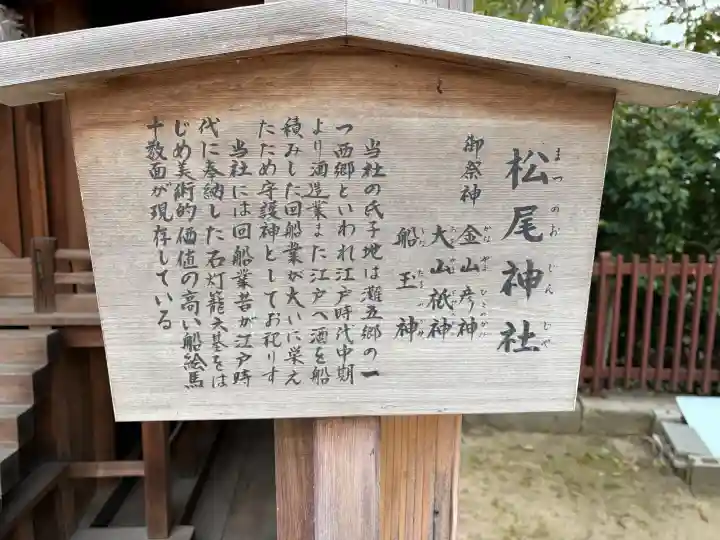 松尾神社
まつのおじんじゃ
御祭神
金山彦神
かなやまひこのかみ
大山祇神
船玉神
当社の氏子地は灘五郷の一
つ西郷といわれ江戸時代中期
より酒造業また江戸へ酒を船
積みした回船業が大いに栄え
たため守護神としてお祀りす
当社には回船業者が江戸時
代に奉納した石灯籠六基をは
じめ美術的価値の高い船絵馬
十数面が現存している